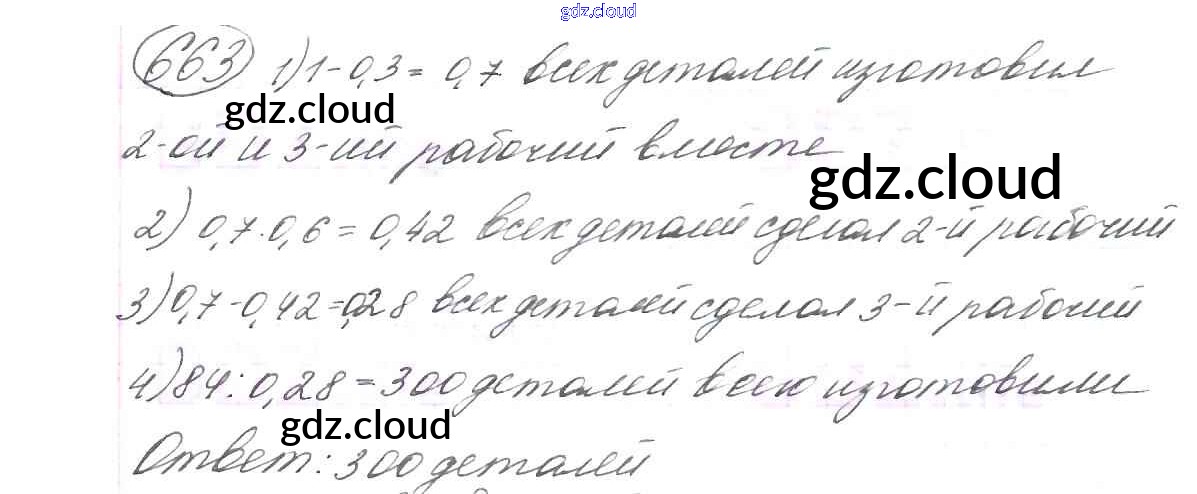 gdz.cloud
663 1) 1-0,3 = 0,7 всех деталей изготовил
gdz.cloud
2-ой и 3-ий рабочий вместе
gdz.cloud
2) 0,7·0,6 = 0,42 всех деталей сделал 2-й рабочий
3) 0,7-0,42=0,28 всех деталей сделал 3-й рабочий
4) 84:0,28 = 300 деталей всего изготовили
gdz.cloud
Ответ: 300 деталей